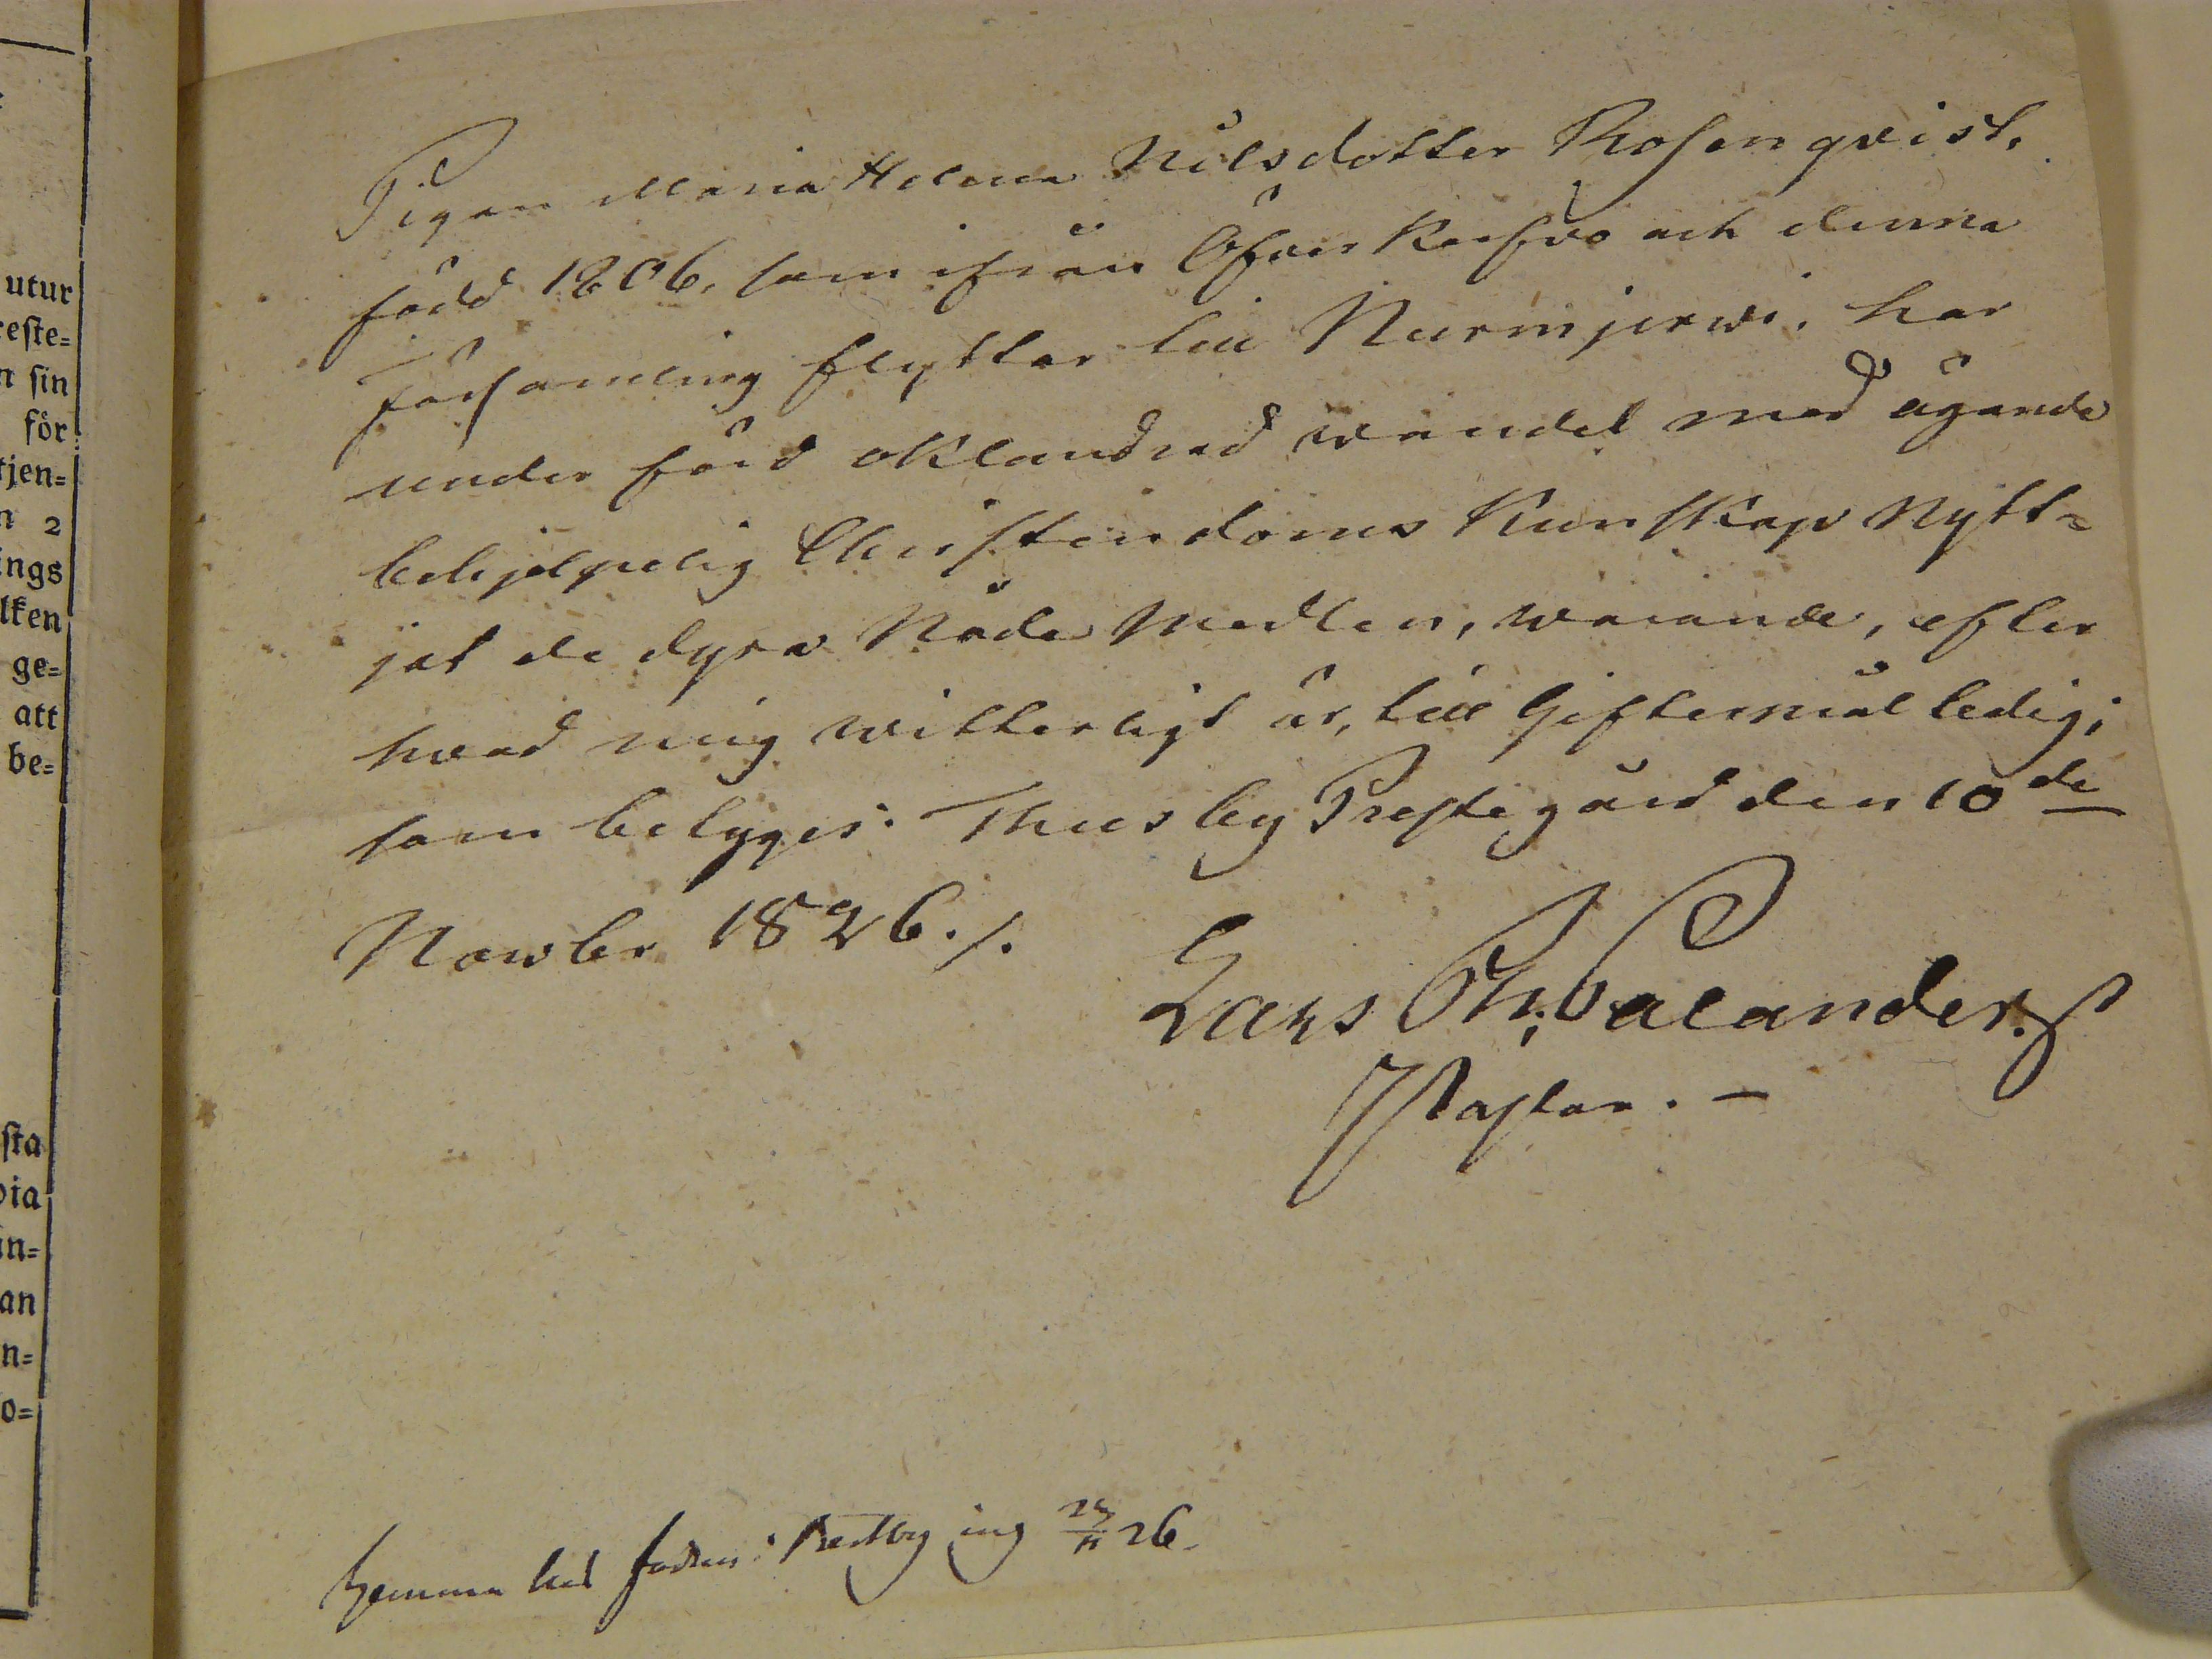 utur
reste=
n sin
för
tjen=
n 2
ings
lken
ge=
att
be=
sta
via
in=
an
n=
o=
Pigan Maria Helena Nilsdotter Rosenqvist,
född 1806, som ifrån Öfver Kerfvo och denna
Församling flyttar till Nurmjerwi, har
under förd oklandrad wandel med ägande
behjelpelig Christendoms Kunskap Nytt=
jat de dyra Nåde Medlen, warande, efter
hvad mig witterligt är, till Giftermål ledig;
som betyges. Thusby Prestegård den 10de
Novbr 1826./.
Lars Th. Palander.
Pastor. —
hemma hos fadren i ing 11 26.